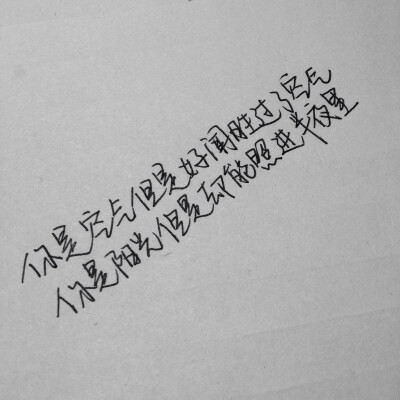 你是空气但是好闻胜过了空气
你是阳光但是却能照进半夜里